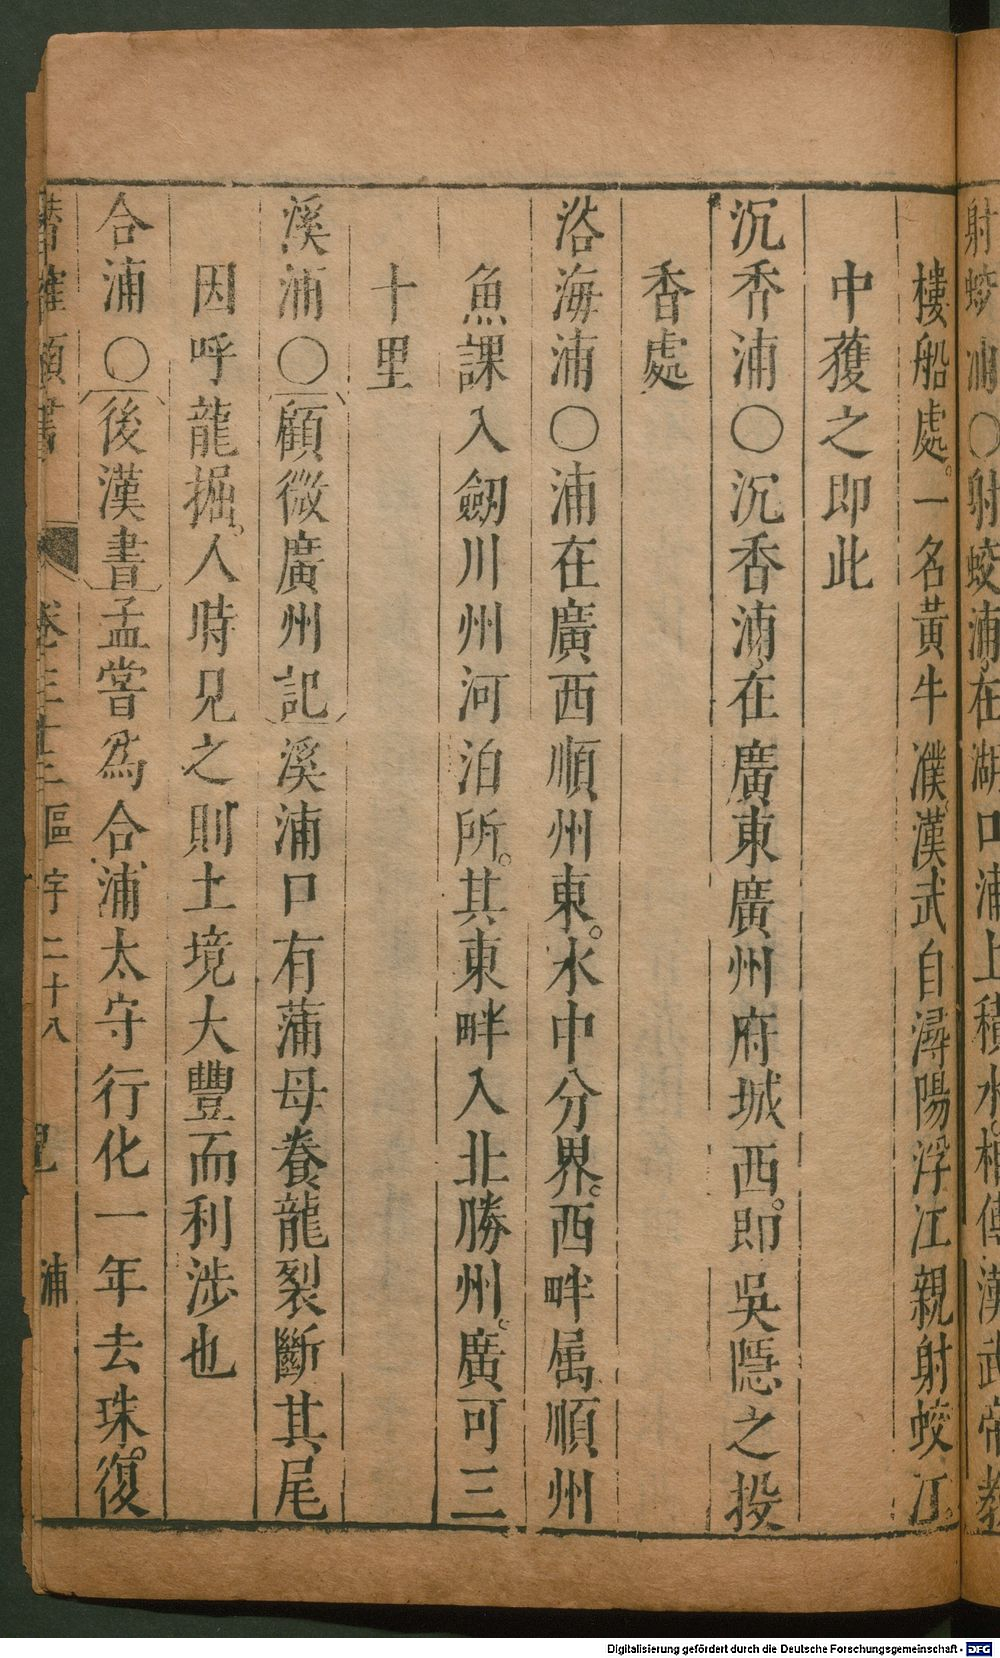 射蛟浦〇射蛟浦在湖口浦上積水相傳漢武帝教
樓船處。一名黃牛濮。漢武自潯陽浮江親射蛟江
中獲之即此
沉香浦〇沉香浦在廣東廣州府城西。即吳隱之投
香處
浴海浦〇浦在廣西順州東。水中分界。西畔属順州
魚課入劒川州河泊所。其東畔入北勝州。廣可三
十里
溪浦〇顧微廣州記溪浦口有蒲母養龍裂斷其尾
因呼龍掘。人時見之則土境大豐而利涉也
合浦〇後漢書孟嘗爲合浦太守行化一年去珠。復
卷三十二區宇二十八 浦
Digitalisierung gefördert durch die Deutsche Forschungsgemeinschaft - DFG